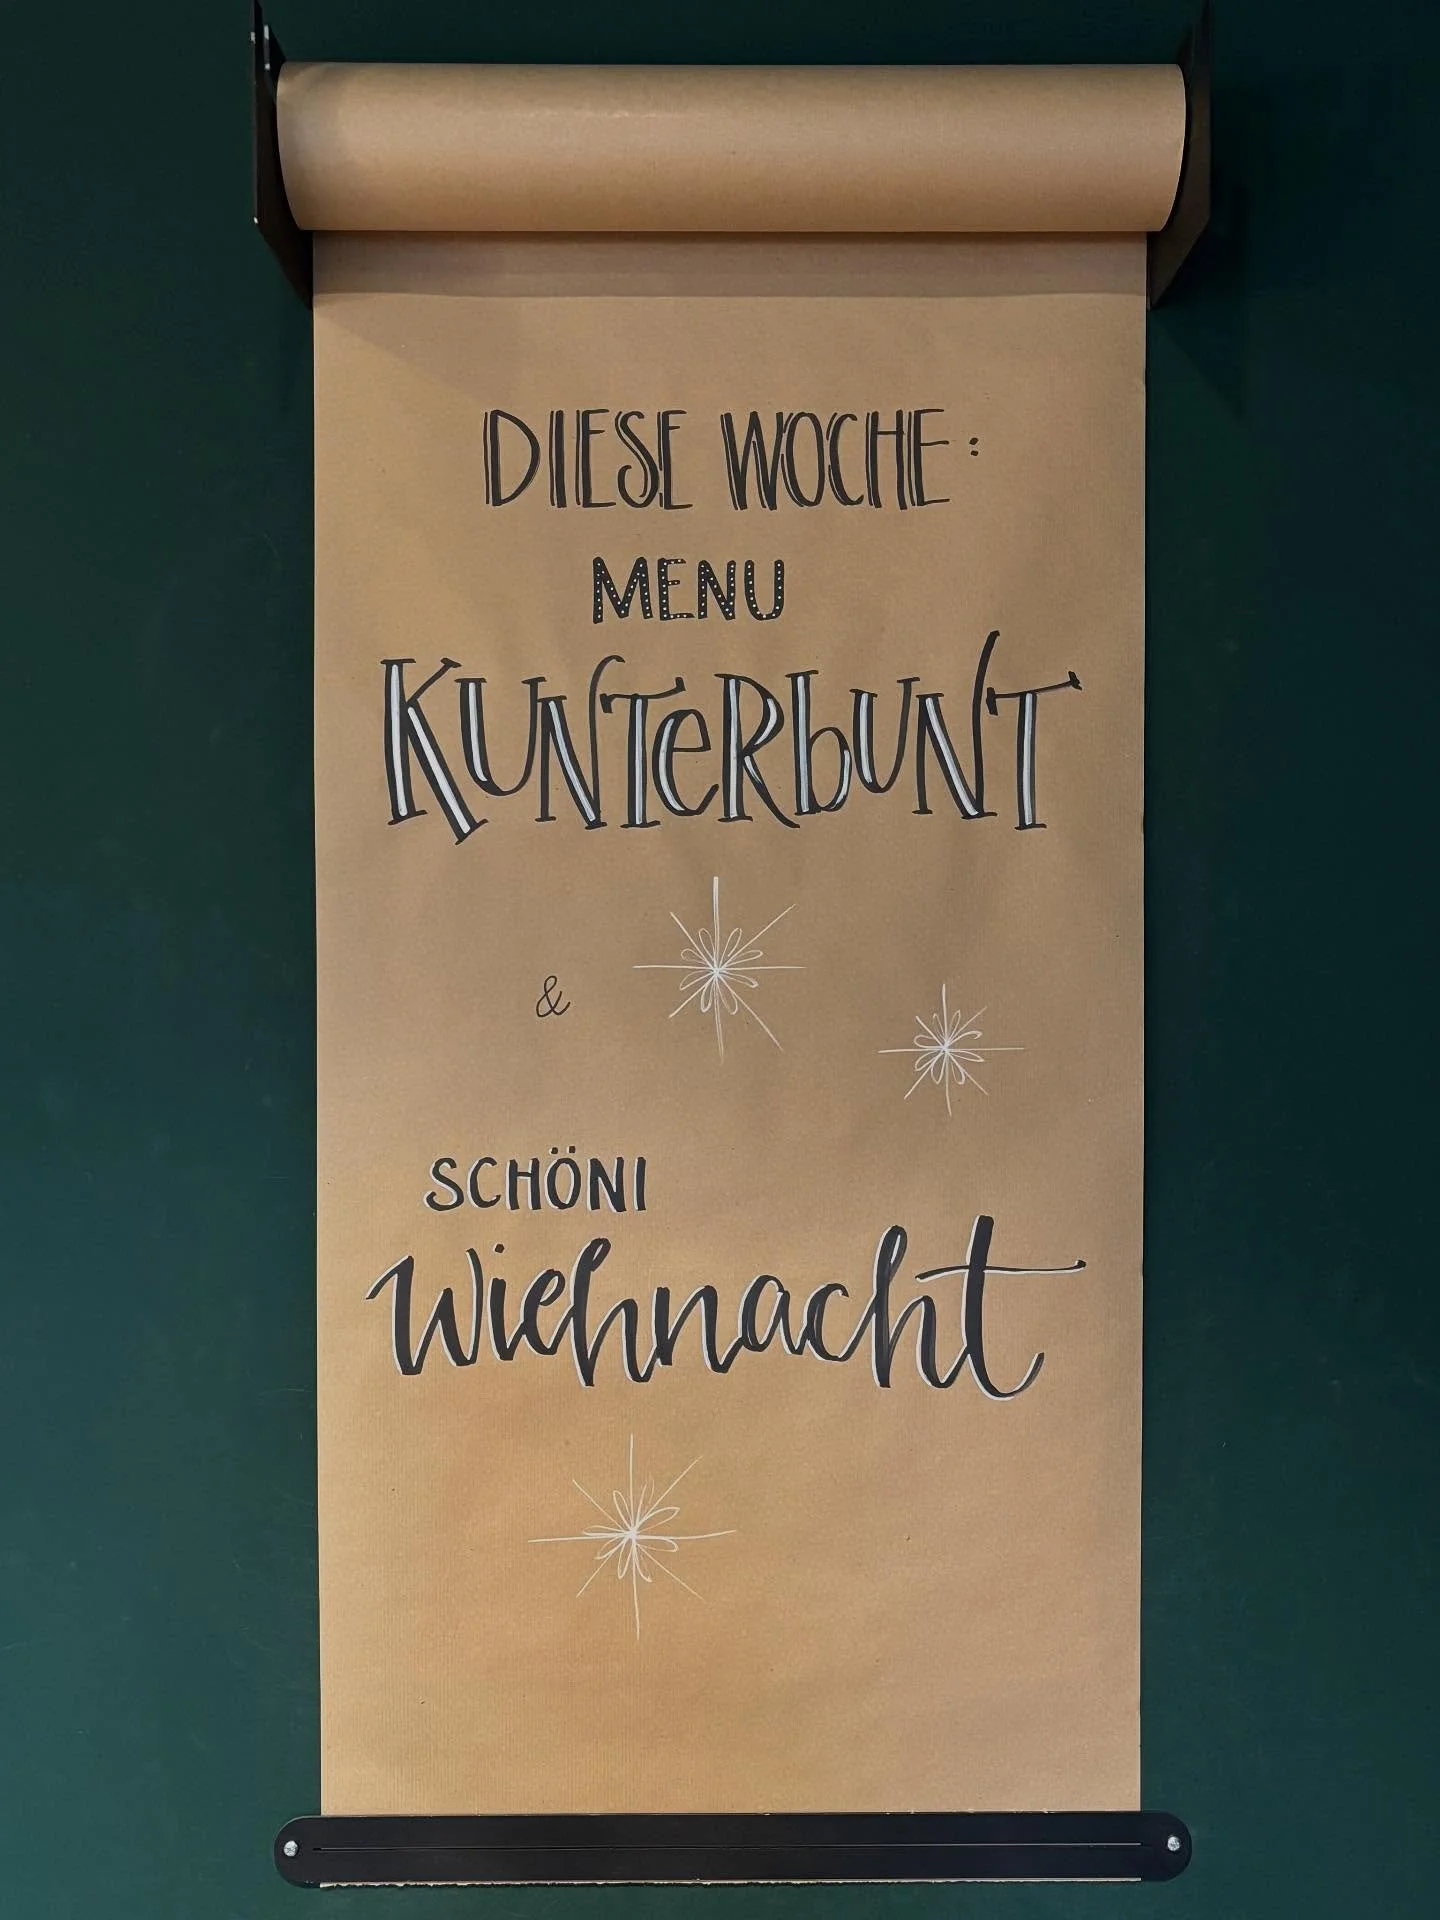 DIESE WOCHE:
MENU
KUNTeRbUNT
&
SCHÖNI
Wiehnacht